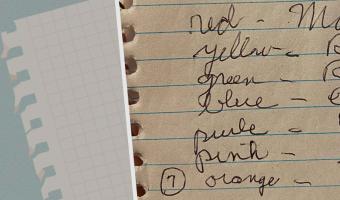 red - Mo
yellow - R
green - R
blue -
purle -
pink -
7 orange -